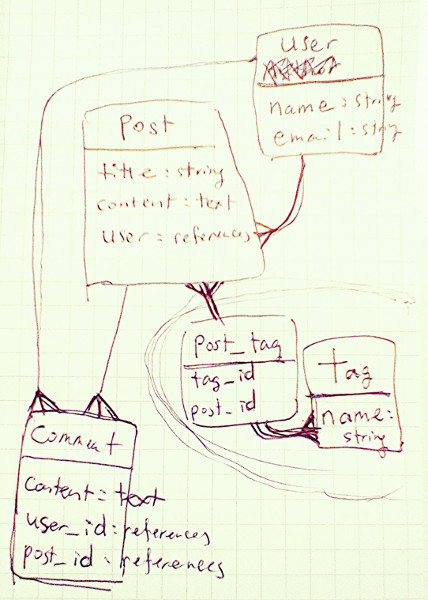 user
name : string
email : string
Post
title : string
content : text
user : references
post_tag
tag_id
post_id
tag
name :
string
Comment
content : text
user_id : references
post_id : references